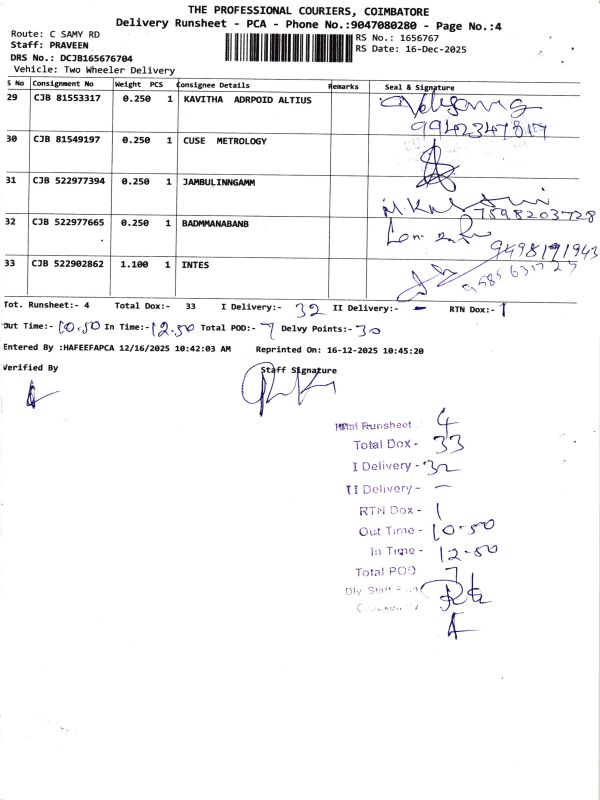 THE PROFESSIONAL COURIERS, COIMBATORE
Delivery Runsheet - PCA - Phone No.:9047080280 - Page No.:4
Route: C SAMY RD
RS No.: 1656767
Staff: PRAVEEN
RS Date: 16-Dec-2025
DRS No.: DCJB165676704
Vehicle: Two Wheeler Delivery
S No Consignment No Weight PCS Consignee Details Remarks Seal & Signature
29 CJB 81553317 0.250 1 KAVITHA ADRPOID ALTIUS
30 CJB 81549197 0.250 1 CUSE METROLOGY
31 CJB 522977394 0.250 1 JAMBULINNGAMM
7598203728
32 CJB 522977665 0.250 1 BADMMANABANB
9498191943
33 CJB 522902862 1.100 1 INTES
Tot. Runsheet:- 4 Total Dox:- 33 I Delivery:- 32 II Delivery:- - RTN Dox:- 1
Out Time:- 10.50 In Time:- 12.50 Total POD:- 7 Delvy Points:- 30
Entered By :HAFEEFAPCA 12/16/2025 10:42:03 AM Reprinted On: 16-12-2025 10:45:20
Verified By Staff Signature
Total Runsheet 4
Total Dox - 33
I Delivery - 32
II Delivery - -
RTN Dox - 1
Out Time - 10.50
In Time - 12-50
Total POD 7
Dly. Staff